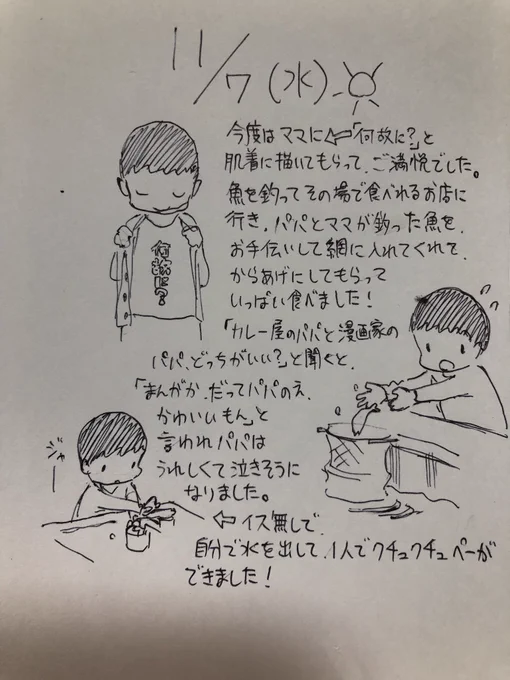 11/7(水)
今度はママに⇦「何故に?」と
肌着に描いてもらって、ご満悦でした。
魚を釣ってその場で食べれるお店に
行き、パパとママが釣った魚を、
お手伝いして網に入れてくれて、
からあげにしてもらって
いっぱい食べました!
何故に?
「カレー屋のパパと漫画家の
パパ、どっちがいい?」と聞くと、
「まんがか、だってパパのえ、
かわいいもん」と
言われパパは
うれしくて泣きそうに
なりました。
ジャー
⇦イス無しで、
自分で水を出して、1人でクチュクチュペーが
できました!